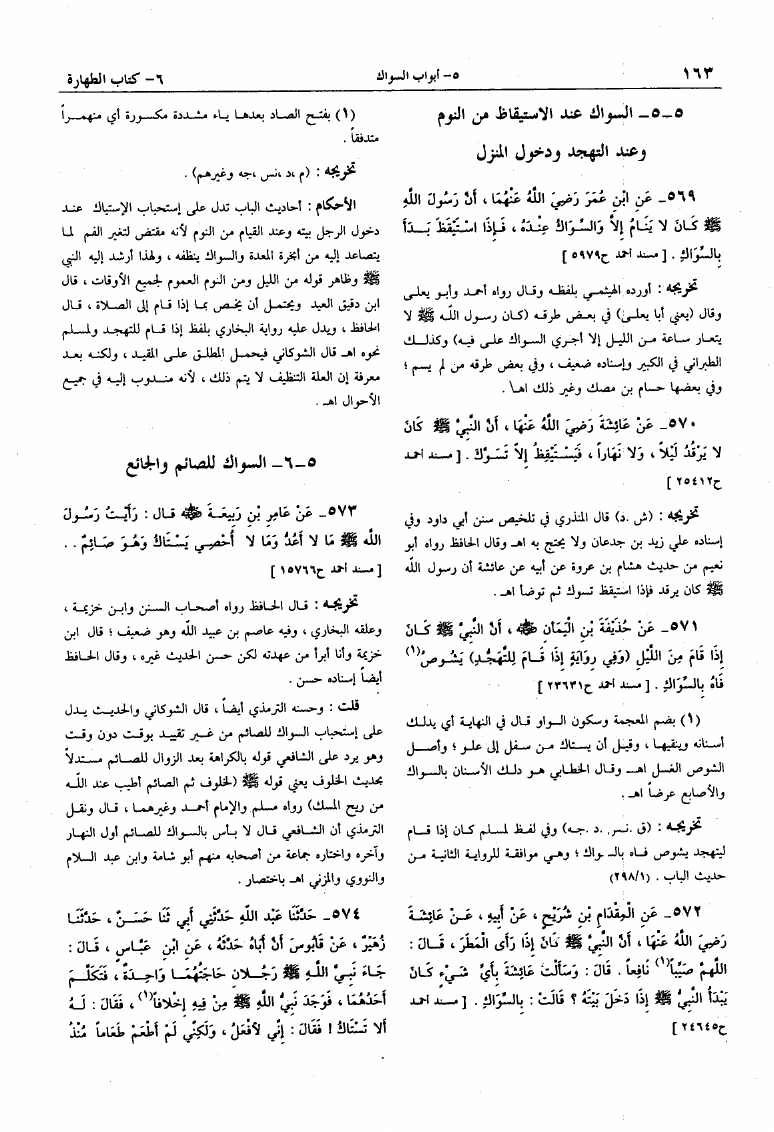 ١٦٣
٥- أبواب السواك
٦- كتاب الطهارة
٥-٥- السواك عند الاستيقاظ من النوم
وعند التهجد ودخول المنزل
٥٦٩- عَنِ ابْنِ عُمَرَ رَضِيَ اللَّهُ عَنْهُمَا ، أَنَّ رَسُولَ اللَّهِ
ﷺ كَانَ لَا يَنَامُ إِلَّا وَالسِّوَاكُ عِنْدَهُ ، فَإِذَا اسْتَيْقَظَ بَدَأَ
بِالسِّوَاكِ . [ مسند أحمد ح٥٩٧٩ ]
تخريجه : أورده الهيثمي بلفظه وقال رواه أحمد وأبو يعلى
وقال (يعني أبا يعلى) في بعض طرقه (كان رسول الله ﷺ لا
يتعار ساعة من الليل إلا أجرى السواك على فيه) وكذلك
الطبراني في الكبير وإسناده ضعيف ، وفي بعض طرقه من لم يسم ؛
وفي بعضها حسام بن مصك وغير ذلك اهـ .
٥٧٠- عَنْ عَائِشَةَ رَضِيَ اللَّهُ عَنْهَا ، أَنَّ النَّبِيَّ ﷺ كَانَ
لَا يَرْقُدُ لَيْلاً ، وَلَا نَهَاراً ، فَيَسْتَيْقِظُ إِلَّا تَسَوَّكَ . [ مسند أحمد
ح٢٥٤١٢ ]
تخريجه : (ش .د) قال المنذري في تلخيص سنن أبي داود وفي
إسناده علي زيد بن جدعان ولا يحتج به اهـ وقال الحافظ رواه أبو
نعيم من حديث هشام بن عروة عن أبيه عن عائشة أن رسول الله
ﷺ كان يرقد فإذا استيقظ تسوك ثم توضأ اهـ .
٥٧١- عَنْ حُذَيْفَةَ بْنِ الْيَمَانِ ﷺ ، أَنَّ النَّبِيَّ ﷺ كَانَ
إِذَا قَامَ مِنَ اللَّيْلِ (وَفِي رِوَايَةٍ إِذَا قَامَ لِلتَّهَجُّدِ) يَشُوصُ(١)
فَاهُ بِالسِّوَاكِ . [ مسند أحمد ح٢٣٦٣١ ]
(١) بضم المعجمة وسكون الواو قال في النهاية أي يدلك
أسنانه وينقيها ، وقيل أن يستاك من سفل إلى علو ؛ وأصل
الشوص الغسل اهـ وقال الخطابي هو دلك الأسنان بالسواك
والأصابع عرضاً اهـ .
تخريجه : (ق .نس. .د .جه) وفي لفظ لمسلم كان إذا قام
ليتهجد يشوص فاه بالسواك ؛ وهي موافقة للرواية الثانية من
حديث الباب . (٢٩٨/١)
٥٧٢- عَنِ الْمِقْدَامِ بْنِ شُرَيْحٍ ، عَنْ أَبِيهِ ، عَنْ عَائِشَةَ
رَضِيَ اللَّهُ عَنْهَا ، أَنَّ النَّبِيَّ ﷺ كَانَ إِذَا رَأَى الْمَطَرَ ، قَالَ :
اللَّهُمَّ صَيِّباً(١) نَافِعاً . قَالَ : وَسَأَلْتُ عَائِشَةَ بِأَيِّ شَيْءٍ كَانَ
يَبْدَأُ النَّبِيُّ ﷺ إِذَا دَخَلَ بَيْتَهُ ؟ قَالَتْ : بِالسِّوَاكِ . [ مسند أحمد
ح٢٤٦٤٥ ]
(١) بفتح الصاد بعدها ياء مشددة مكسورة أي منهمراً
متدفقاً .
تخريجه : (م ،د ،نس ،جه وغيرهم) .
الأحكام : أحاديث الباب تدل على إستحباب الإستياك عند
دخول الرجل بيته وعند القيام من النوم لأنه مقتض لتغير الفم لما
يتصاعد إليه من أبخرة المعدة والسواك ينظفه ، ولهذا أرشد إليه النبي
ﷺ وظاهر قوله من الليل ومن النوم العموم لجميع الأوقات ، قال
ابن دقيق العيد ويحتمل أن يخص بما إذا قام إلى الصلاة ، قال
الحافظ ، ويدل عليه رواية البخاري بلفظ إذا قام للتهجد ولمسلم
نحوه اهـ قال الشوكاني فيحمل المطلق على المقيد ، ولكنه بعد
معرفة إن العلة التنظيف لا يتم ذلك ، لأنه مندوب إليه في جميع
الأحوال اهـ .
٥-٦- السواك للصائم والجائع
٥٧٣- عَنْ عَامِرِ بْنِ رَبِيعَةَ ﷺ قال : رَأَيْتُ رَسُولَ
اللَّهِ ﷺ مَا لَا أَعُدُّ وَمَا لَا أُحْصِي يَسْتَاكُ وَهُوَ صَائِمٌ . .
[ مسند أحمد ح١٥٧٦٦ ]
تخريجه : قال الحافظ رواه أصحاب السنن وابن خزيمة ،
وعلقه البخاري ، وفيه عاصم بن عبيد الله وهو ضعيف ؛ قال ابن
خزيمة وأنا أبرأ من عهدته لكن حسن الحديث غيره ، وقال الحافظ
أيضاً إسناده حسن .
قلت : وحسنه الترمذي أيضاً ، قال الشوكاني والحديث يدل
على إستحباب السواك للصائم من غير تقييد بوقت دون وقت
وهو يرد على الشافعي قوله بالكراهة بعد الزوال للصائم مستدلاً
بحديث الخلوف يعني قوله ﷺ (لخلوف ثم الصائم أطيب عند الله
من ريح المسك) رواه مسلم والإمام أحمد وغيرهما ، قال ونقل
الترمذي أن الشافعي قال لا بأس بالسواك للصائم أول النهار
وآخره واختاره جماعة من أصحابه منهم أبو شامة وابن عبد السلام
والنووي والمزني اهـ باختصار .
٥٧٤- حَدَّثَنَا عَبْد اللهِ حَدَّثَنِي أَبِي ثَنَا حَسَنٌ ، حَدَّثَنَا
زُهَيْرٌ ، عَنْ قَابُوسَ أَنَّ أَبَاهُ حَدَّثَهُ ، عَنِ ابْنِ عَبَّاسٍ ، قَالَ :
جَاءَ نَبِيَّ اللَّهِ ﷺ رَجُلَانِ حَاجَتُهُمَا وَاحِدَةٌ ، فَتَكَلَّمَ
أَحَدُهُمَا ، فَوَجَدَ نَبِيُّ اللَّهِ ﷺ مِنْ فِيهِ إِخْلَافاً(١) ، فَقَالَ : لَهُ
أَلَا تَسْتَاكُ ! فَقَالَ : إِنِّي لَأَفْعَلُ ، وَلَكِنِّي لَمْ أَطْعَمْ طَعَاماً مُنْذُ